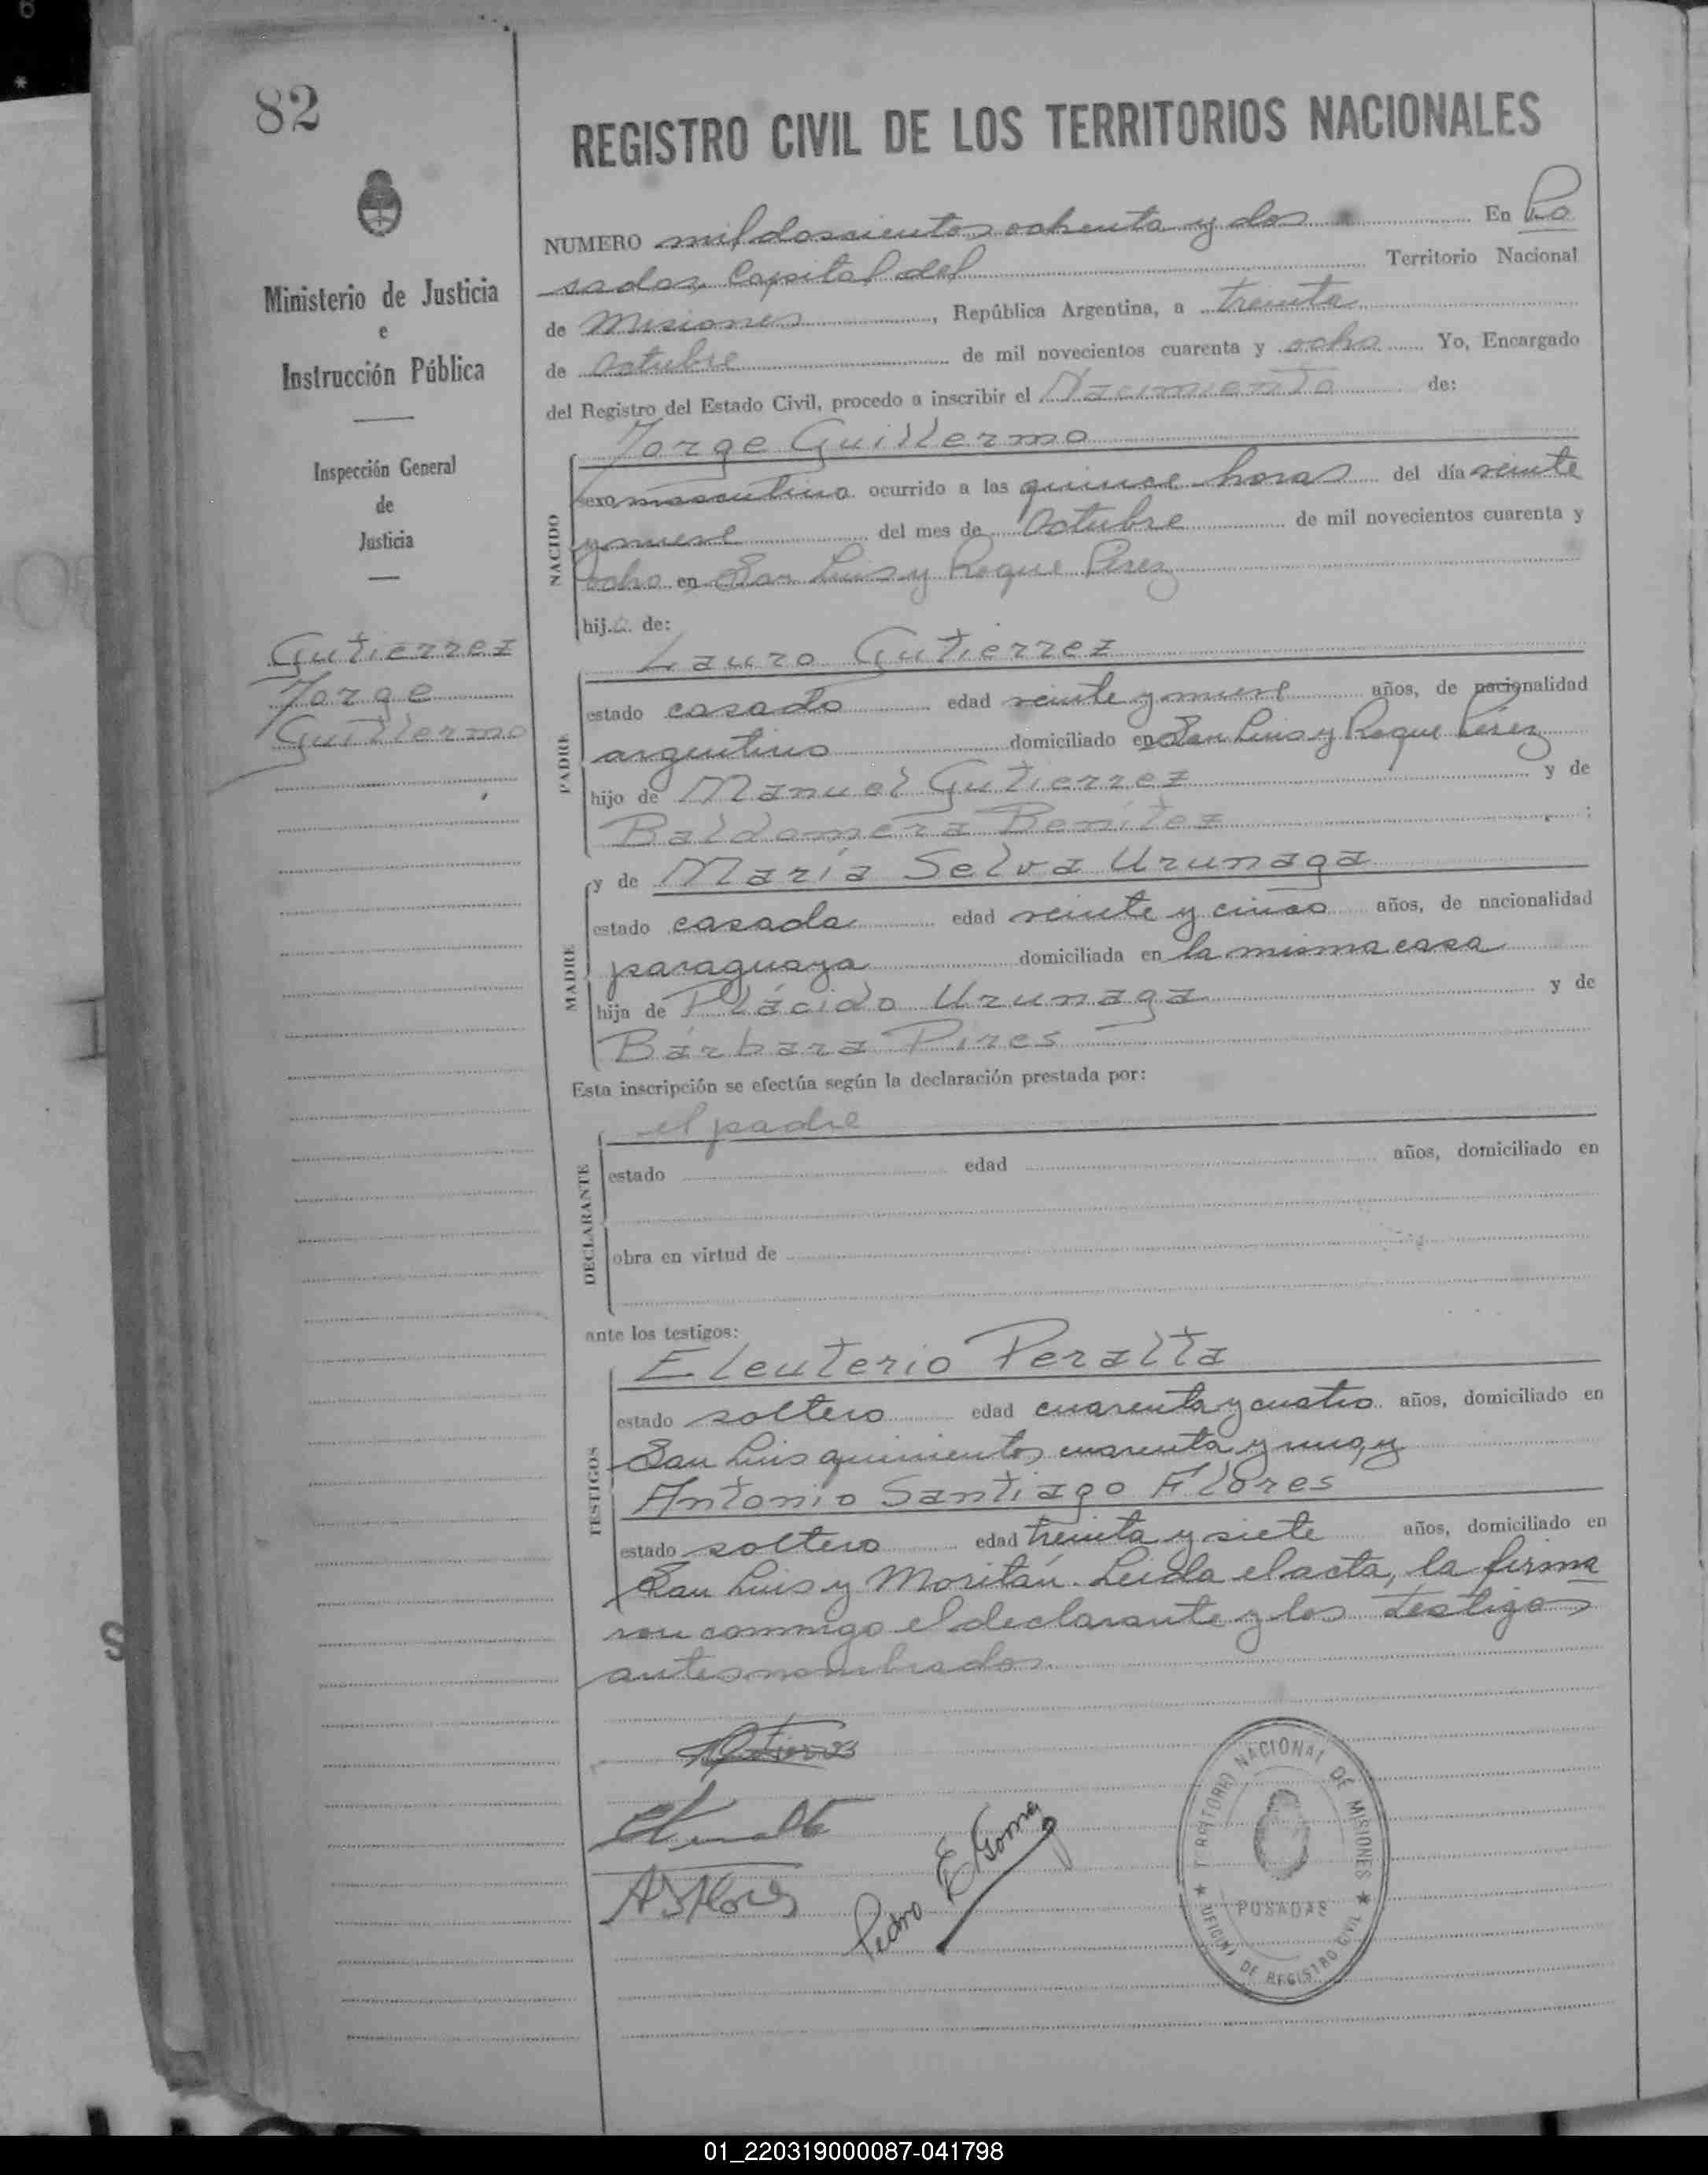 82
REGISTRO CIVIL DE LOS TERRITORIOS NACIONALES
Ministerio de Justicia
e
Instrucción Pública
Inspección General
de
Justicia
Gutierrez
Jorge
Guillermo
NUMERO mil doscientos ochenta y dos En Po
sadas, Capital del Territorio Nacional
de Misiones, República Argentina, a treinta
de Octubre de mil novecientos cuarenta y ocho Yo, Encargado
del Registro del Estado Civil, procedo a inscribir el Nacimiento de:
Jorge Guillermo
NACIDO
sexo masculino ocurrido a las quince horas del día veinte
y nueve del mes de Octubre de mil novecientos cuarenta y
ocho en San Luis y Roque Pérez
hijo de:
Lauro Gutierrez
PADRE
estado casado edad veinte y nueve años, de nacionalidad
argentino domiciliado en San Luis y Roque Pérez
hijo de Manuel Gutierrez y de
Baldomera Benítez ;
MADRE
y de María Selva Urunaga
estado casada edad veinte y cinco años, de nacionalidad
paraguaya domiciliada en la misma casa
hija de Plácido Urunaga y de
Bárbara Pires
Esta inscripción se efectúa según la declaración prestada por:
el padre
DECLARANTE
estado edad años, domiciliado en
obra en virtud de
ante los testigos:
Eleuterio Peralta
TESTIGOS
estado soltero edad cuarenta y cuatro años, domiciliado en
San Luis quinientos cuarenta y uno, y
Antonio Santiago Flores
estado soltero edad treinta y siete años, domiciliado en
San Luis y Moritán. Leida el acta, la firma
ron conmigo el declarante y los testigos
antes nombrados.
A S Flores
Pedro E Gomez
TERRITORIO NACIONAL DE MISIONES
POSADAS
OFICINA DE REGISTRO CIVIL
01_220319000087-041798